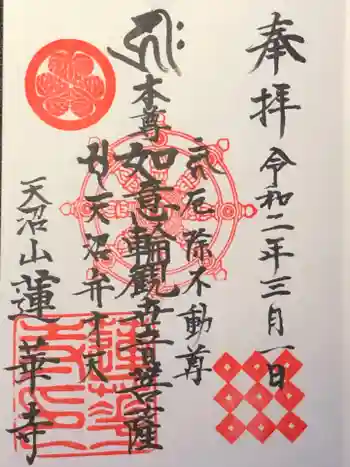 奉拝
令和二年三月一日
厄除不動尊
本尊
如意輪観世音菩薩
天沼弁才天
天沼山
蓮華寺